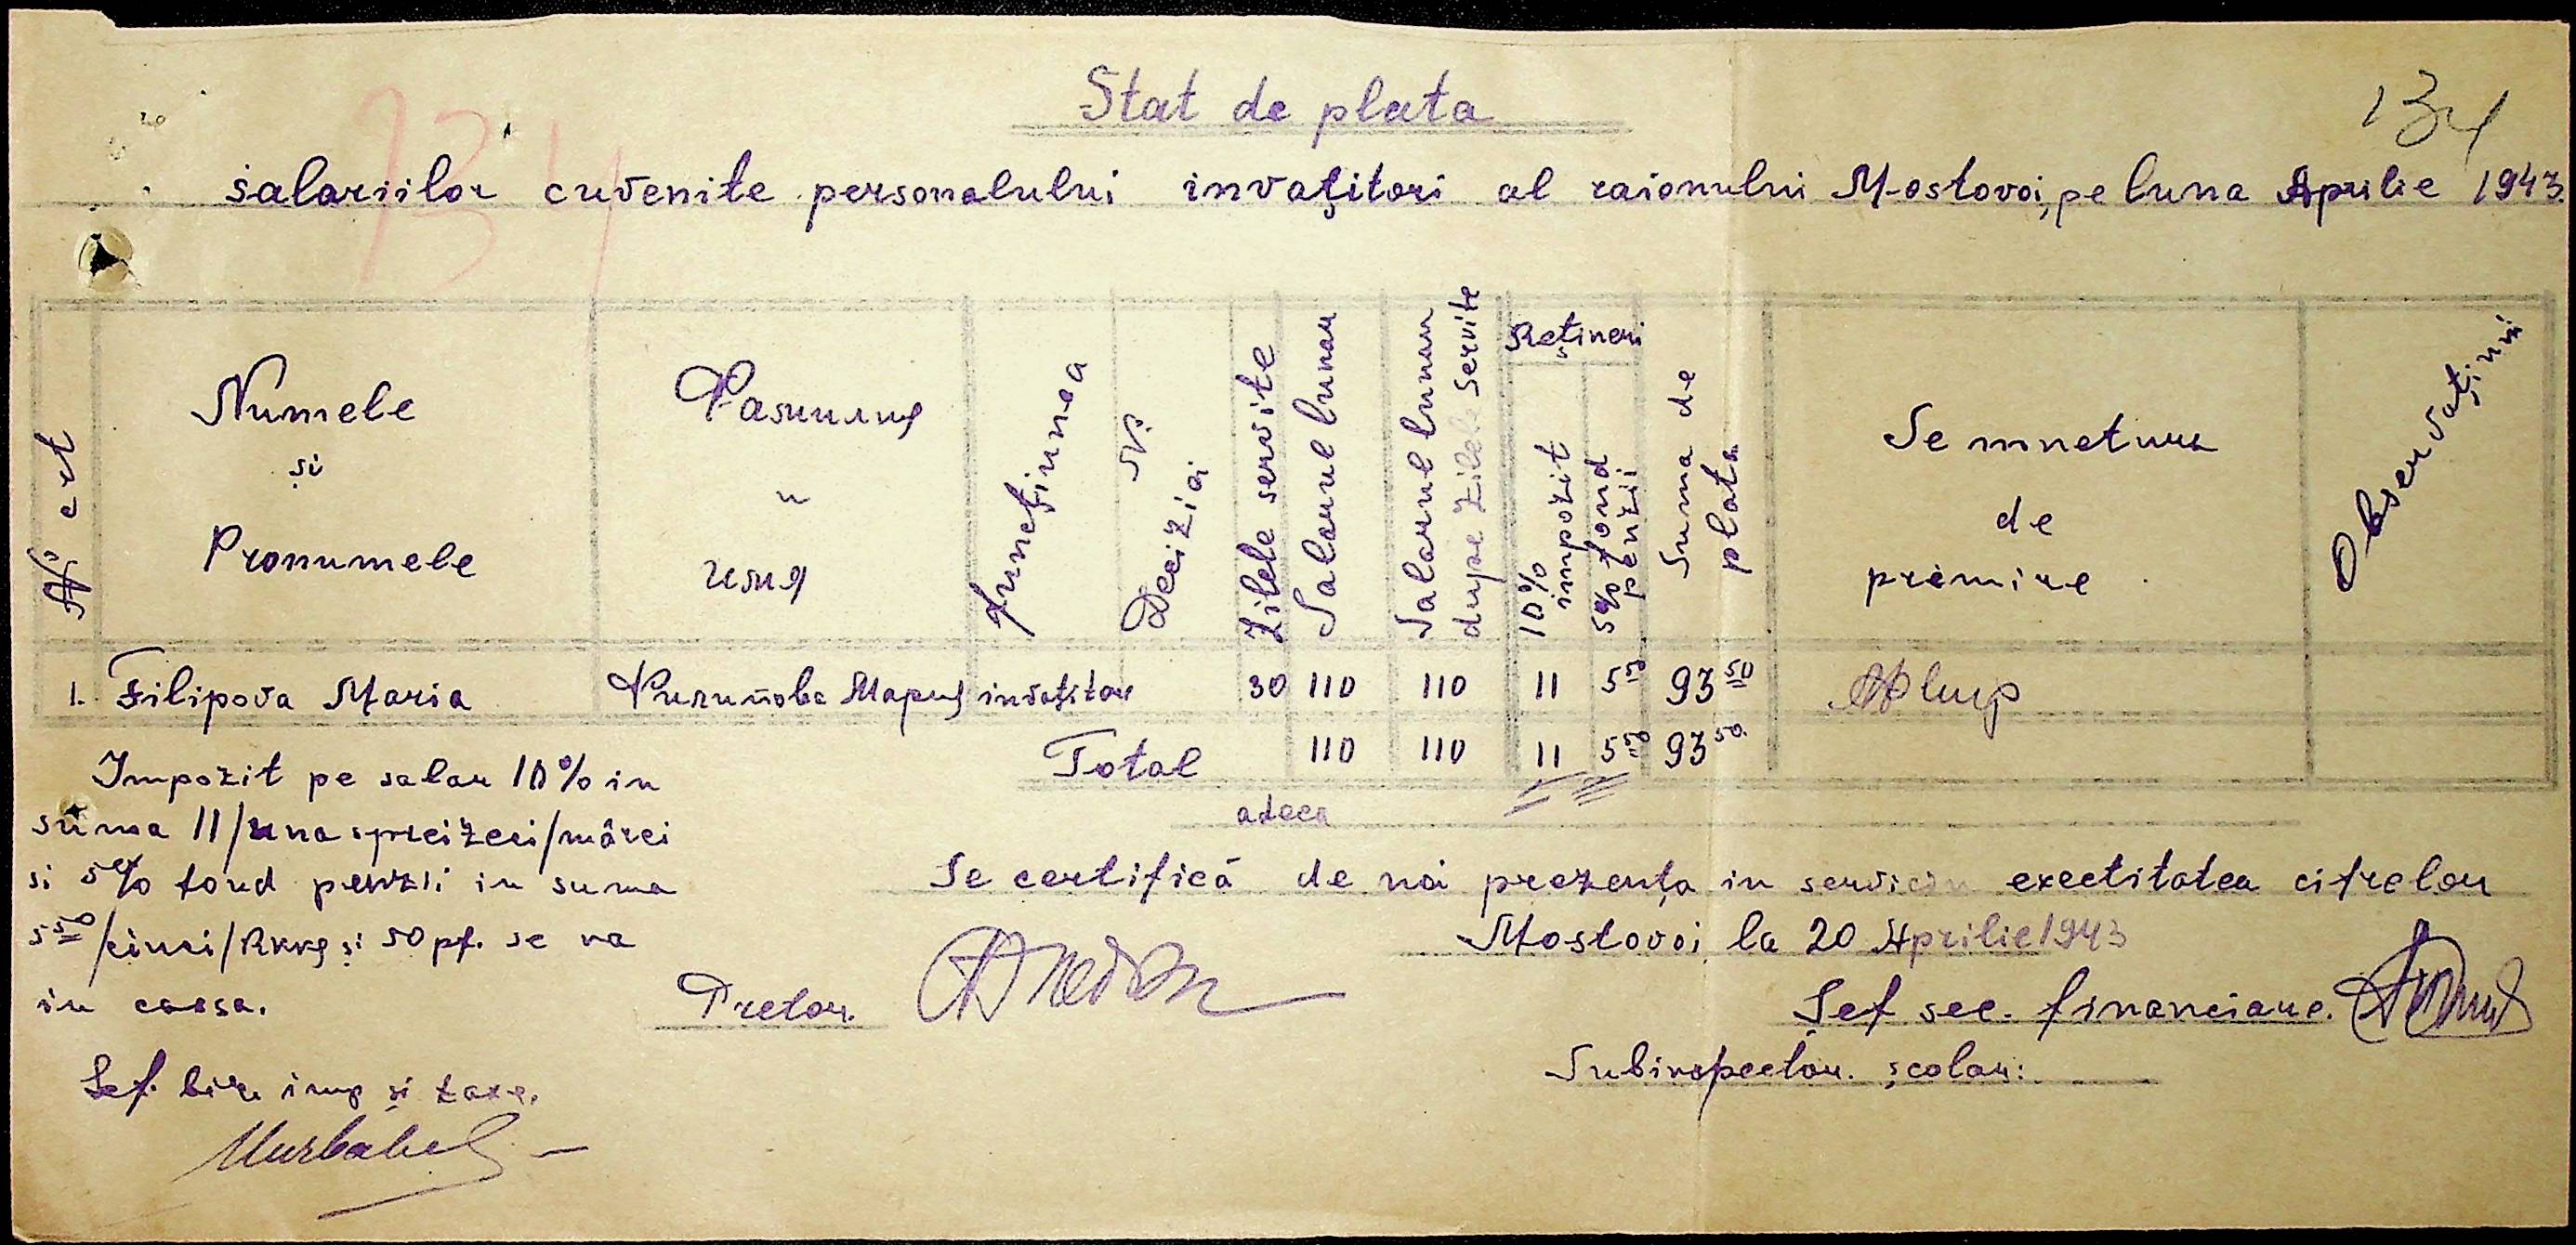 Stat de plata
134
134
salariilor cuvenite personalului invaţitori al raionului Mostovoi, pe luna Aprilie 1943.
№ crt
Numele
și
Pronumele
Фамилия
и
имя
Funcţiunea
№ Deciziei
Zilele servite
Salarul lunar
Salarul lunar dupe zilele servite
Reţineri
10% impozit
5% fond penzii
Suma de plata
Semnetura
de
primire
Observaţiuni
1. Filipova Maria Филипова Мария invaţitor 30 110 110 11 5 50 93 50
Total 110 110 11 5 50 93 50
adeca
Impozit pe salar 10% in
suma 11/una spreizeci/mărci
si 5% fond penzii in suma
5 50/cinci/RKKS și 50 pf. se va
in cassa.
Se certifică de noi prezenţa in serviciu exectitatea cifrelor
Mostovoi, la 20 Aprilie 1943
Pretor.
Șef sec. financiare.
Subinspector. școlar:
Șef. bir. imp și taxe.